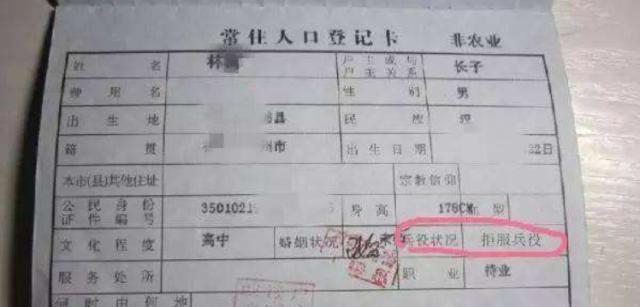 常住人口登记卡 非农业
姓名 林 户主或与户主关系 长子
曾用名 性别 男
出生地 县 民族 汉
籍贯 州市 出生日期 22日
本市(县)其他住址 宗教信仰
公民身份证件编号 3501021 身高 176CM 血型
文化程度 高中 婚姻状况 兵役状况 拒服兵役
服务处所 职业 待业
何时由何地